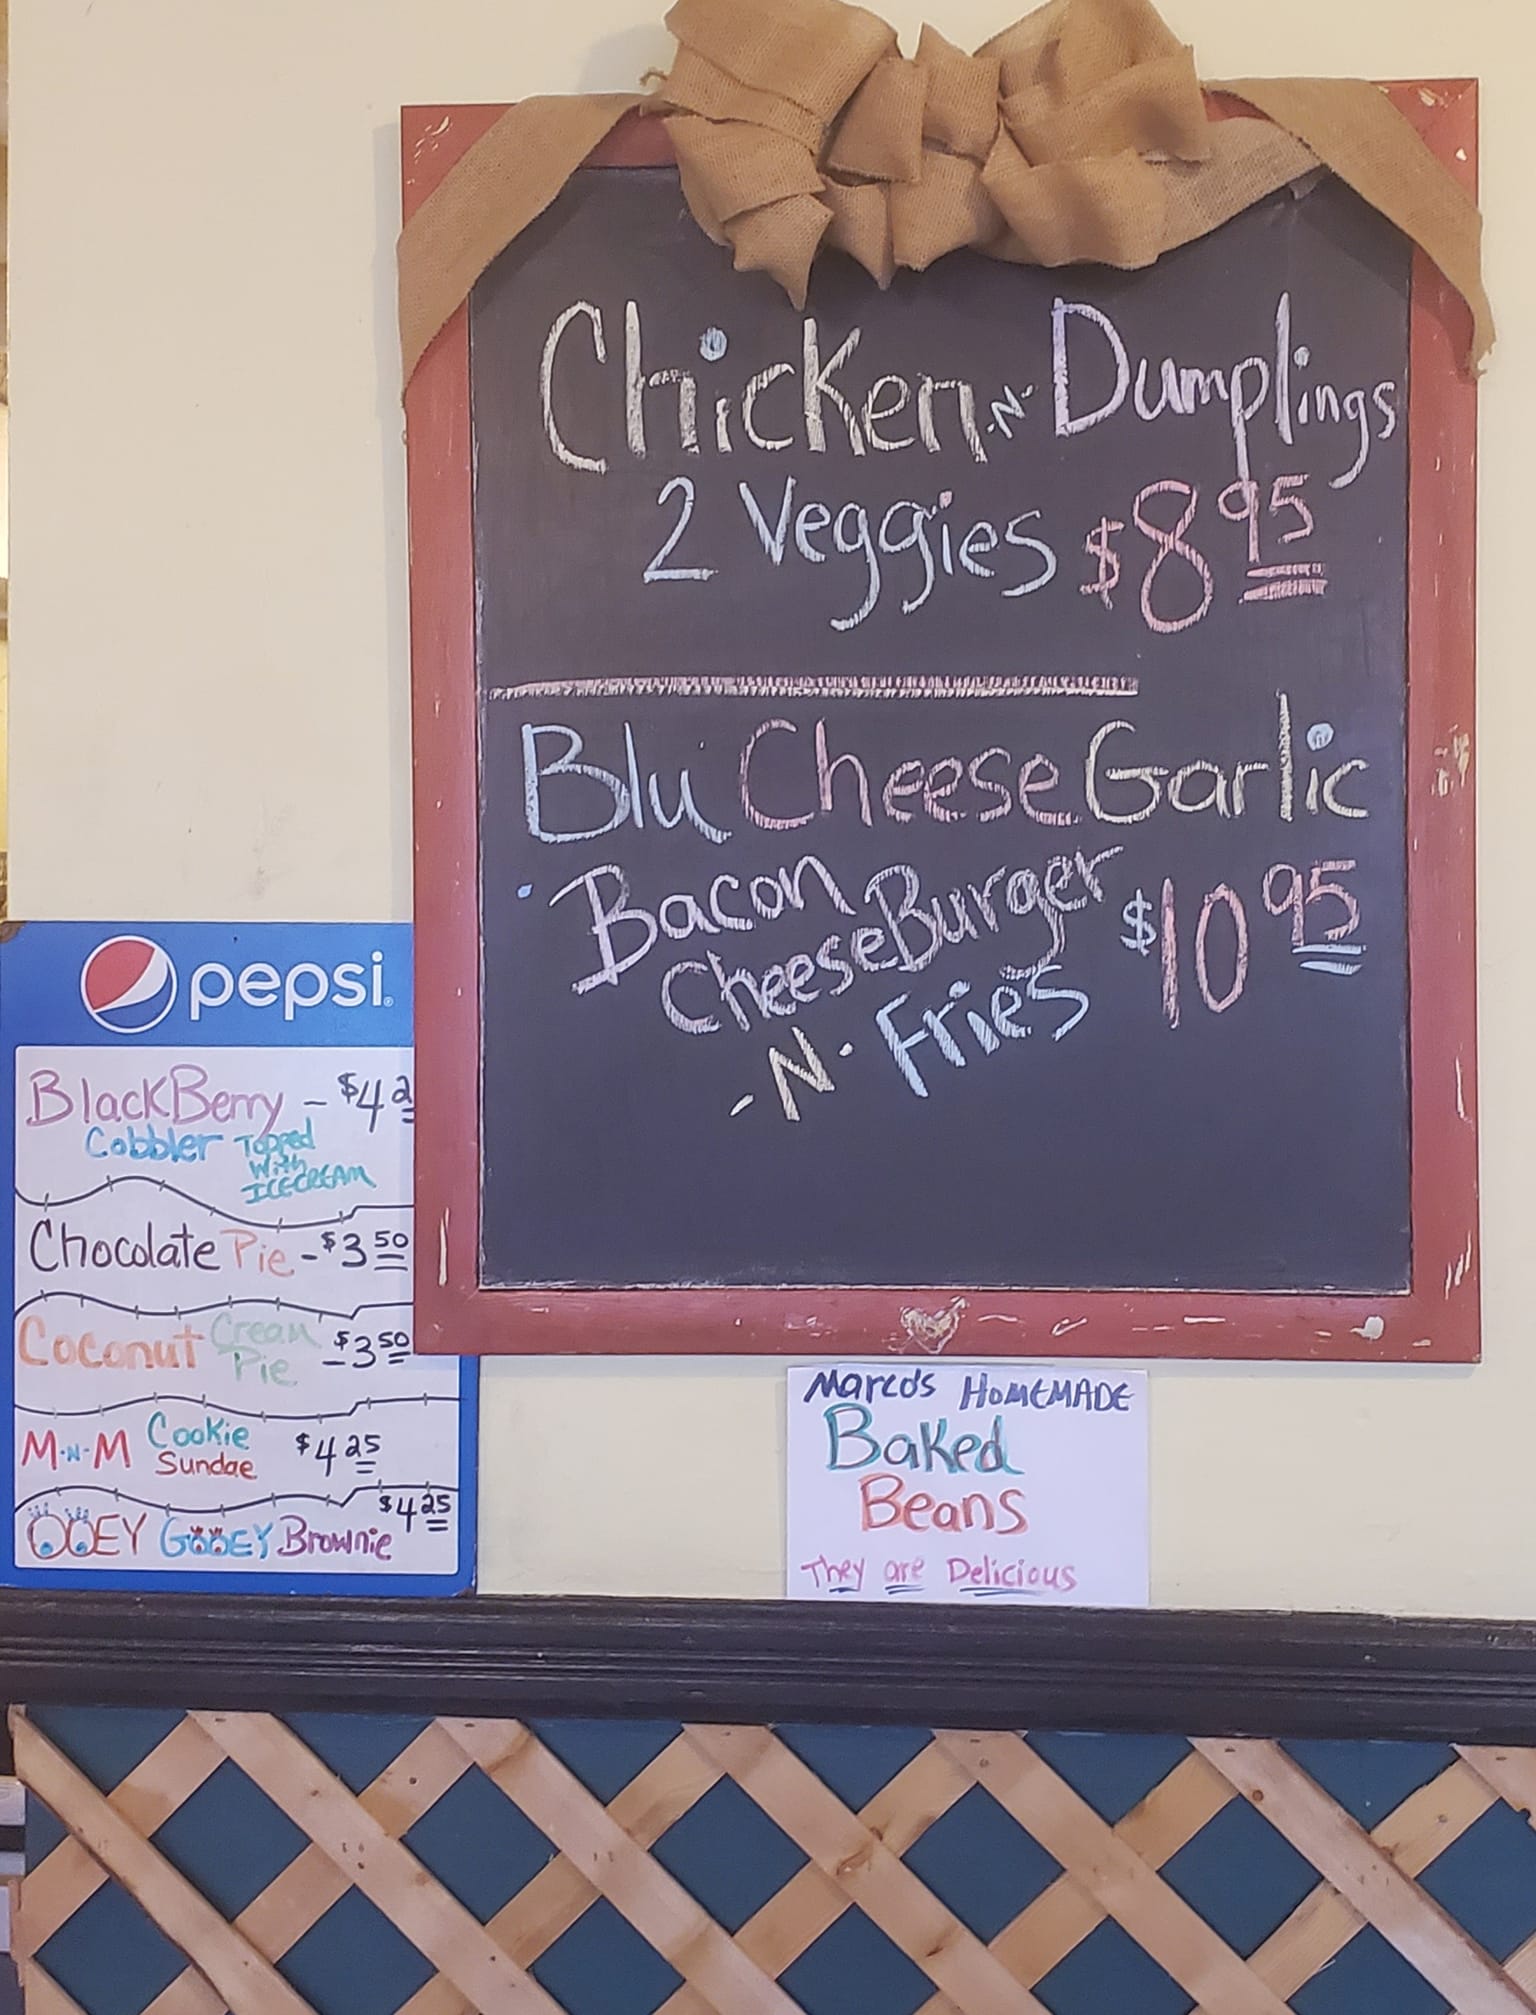 Chicken -N- Dumplings
2 Veggies $8 95
Blu Cheese Garlic
Bacon
CheeseBurger $10 95
-N- Fries
pepsi
BlackBerry - $4 2
Cobbler Topped
With
ICECREAM
Chocolate Pie - $3 50
Coconut Cream
Pie - $3 50
M-N-M Cookie
Sundae $4 25
OOEY GOOEY Brownie $4 25
Marco's HOMEMADE
Baked
Beans
They are Delicious